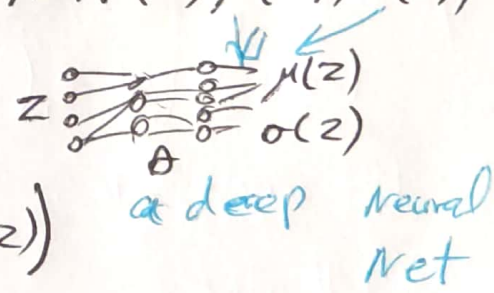 μ(z)
z
σ(z)
θ
a deep Neural
z))
Net